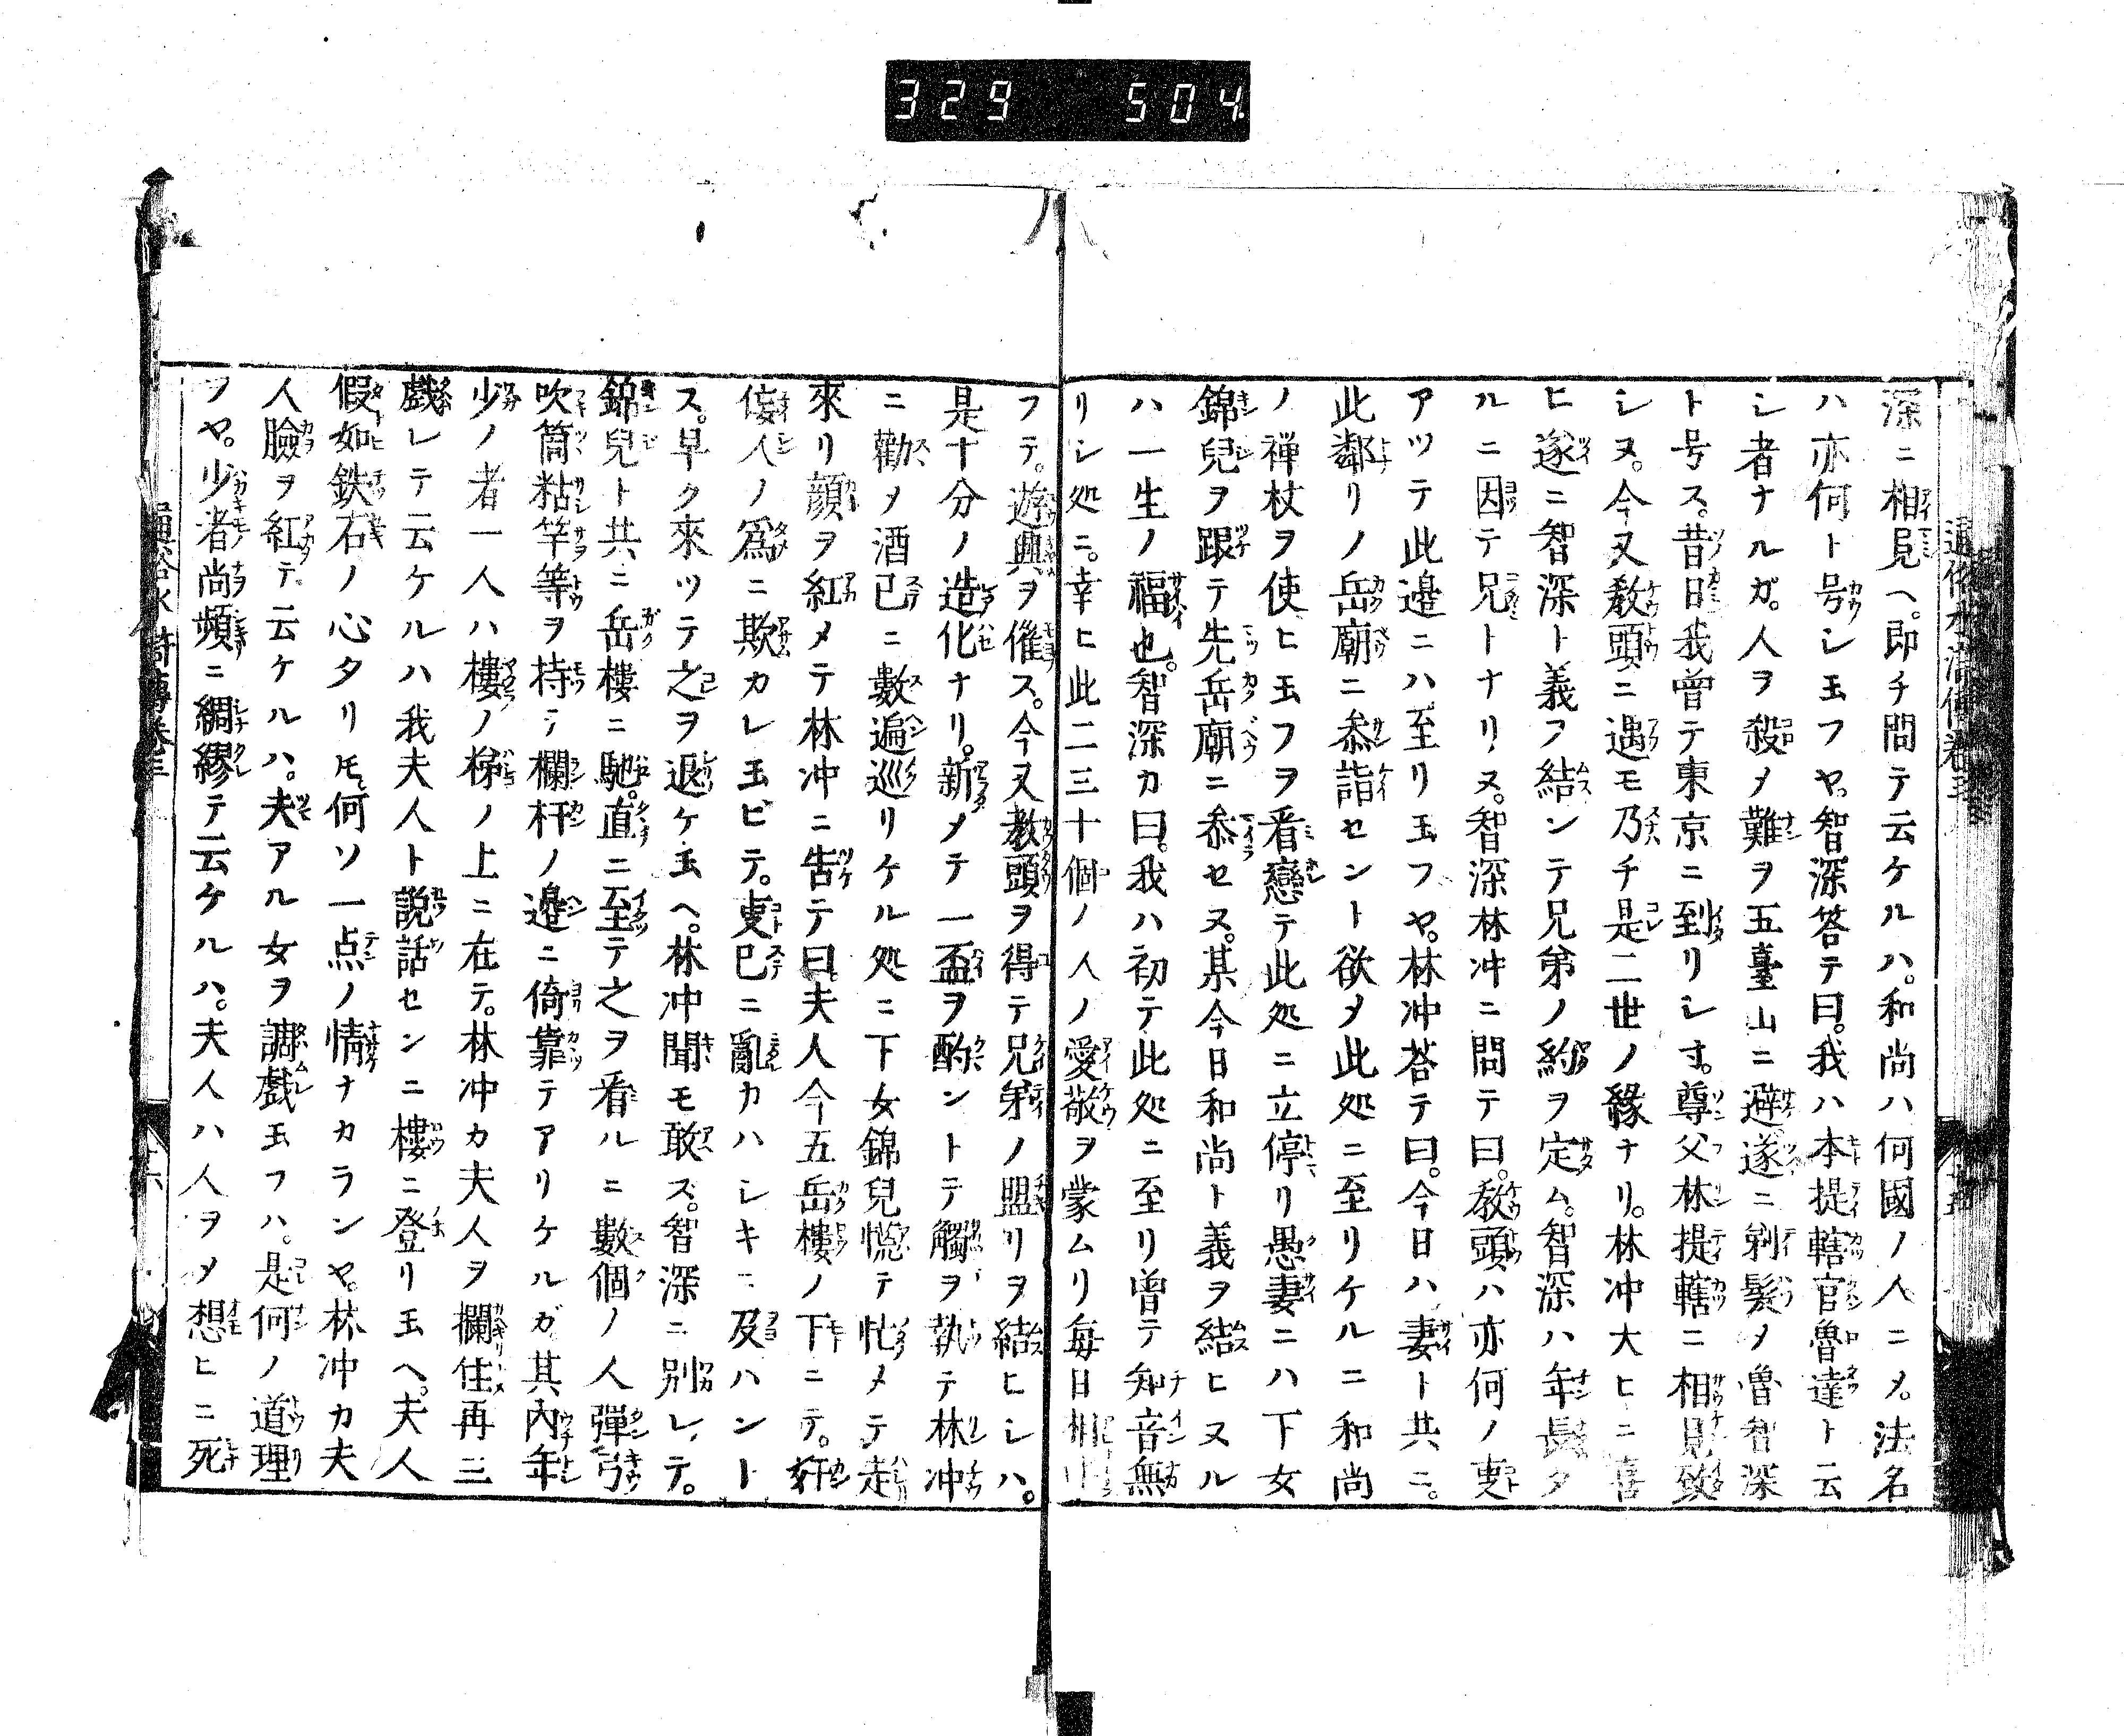 329 504
深ニ相見ヘ。即チ問テ云ケルハ。和尚ハ何國ノ人ニメ。法名
ハ亦何ト号シ玉フヤ。智深答テ曰。我ハ本提轄官魯達ト云
シ者ナルガ。人ヲ殺メ難ヲ五臺山ニ避遂ニ剃髮メ魯智深
ト号ス。昔日我曾テ東京ニ到リシ寸。尊父林提轄ニ相見致
シヌ。今又教頭ニ遇モ乃チ是二世ノ緣ナリ。林冲大ヒニ喜
ヒ遂ニ智深ト義フ結ンテ兄弟ノ約ヲ定ム。智深ハ年長タ
ルニ因テ兄トナリヌ。智深林冲ニ問テ曰。教頭ハ亦何ノ叓
アツテ此邊ニハ至リ玉フヤ。林冲荅テ曰。今日ハ妻ト共ニ。
此鄰リノ岳廟ニ叅詣セント欲メ此処ニ至リケルニ和尚
ノ禅杖ヲ使ヒ玉フヲ看戀テ此処ニ立停リ愚妻ニハ下女
錦兒ヲ跟テ先岳廟ニ叅セヌ。某今日和尚ト義ヲ結ヒヌル
ハ一生ノ福也。智深カ曰。我ハ初テ此処ニ至リ曽テ知音無
リシ処ニ。幸ヒ此二三十個ノ人ノ愛敬ヲ蒙ムリ每日相
フテ。遊興ヲ催ス。今又教頭ヲ得テ兄弟ノ盟リヲ結ヒシハ。
是十分ノ造化ナリ。新メテ一盃ヲ酌ントテ觴ヲ執テ林冲
ニ勸メ酒已ニ數遍巡リケル処ニ下女錦兒慌テ忙メテ走
來リ顔ヲ紅メテ林冲ニ告テ曰。夫人今五岳樓ノ下ニテ。奸
侫人ノ爲ニ欺カレ玉ビテ。叓已ニ亂カハシキニ及ハント
ス。早ク來ツテ之ヲ退ケ玉ヘ。林冲聞モ敢ス。智深ニ別レテ。
錦兒ト共ニ岳樓ニ馳。直ニ至テ之ヲ看ルニ數個ノ人彈弓
吹筒粘竿等ヲ持テ欄杆ノ邉ニ倚靠テアリケルガ其内年
少ノ者一人ハ樓ノ梯ノ上ニ在テ。林冲カ夫人ヲ攔住再三
戲レテ云ケルハ我夫人ト說話センニ樓ニ登リ玉ヘ。夫人
假如鉄石ノ心タリ𪜈。何ソ一点ノ情ナカランヤ。林冲カ夫
人臉ヲ紅テ云ケルハ。夫アル女ヲ調戲玉フハ。是何ノ道理
ソヤ。少者尚頻ニ綢繆テ云ケルハ。夫人ハ人ヲメ想ヒニ死